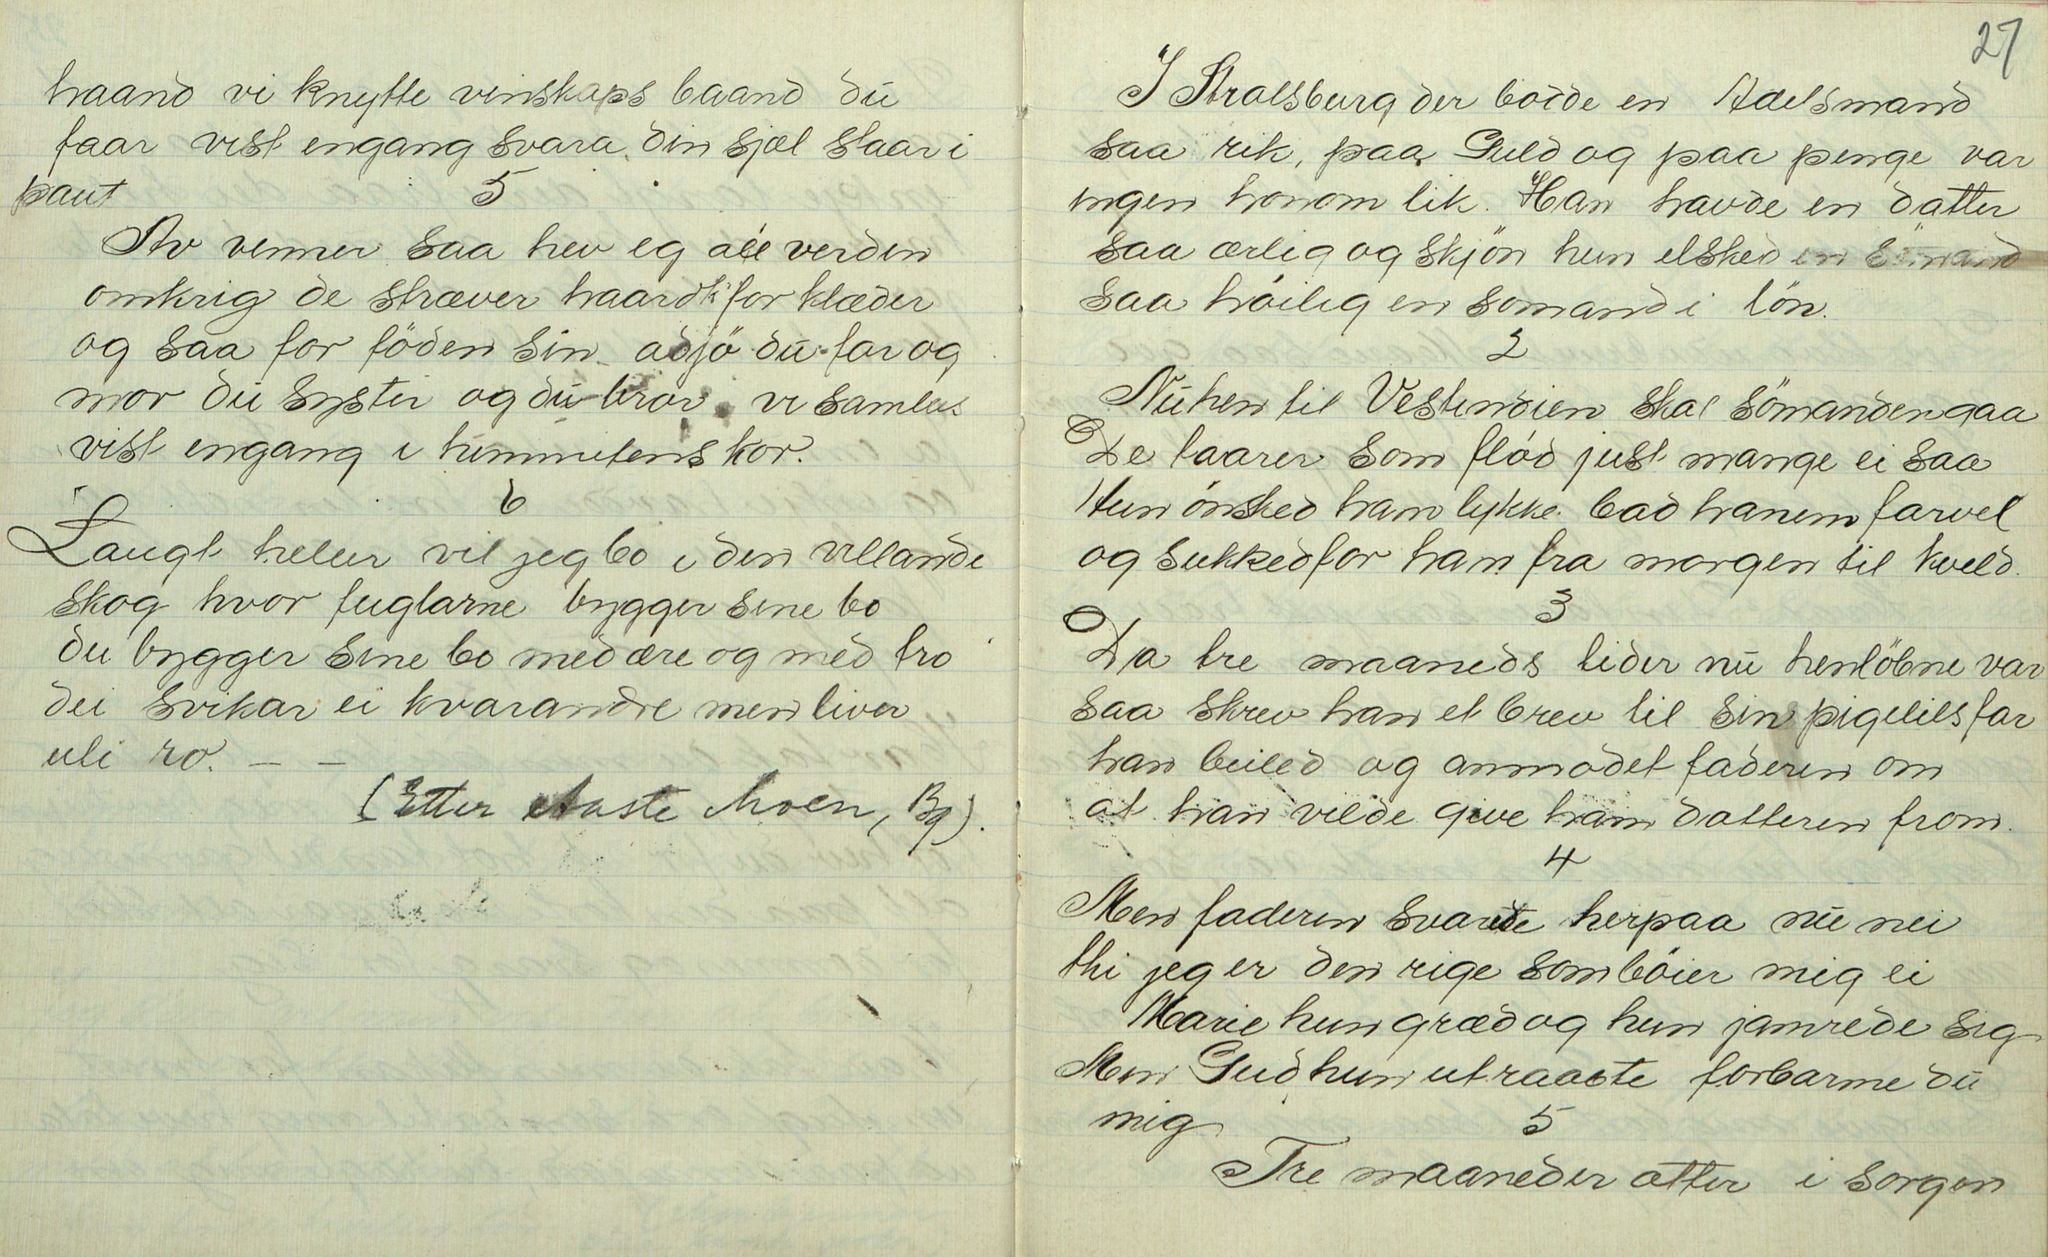 haand vi knytte vinskaps baand du
faar vist engang svara din sjæl staar i
pant
5
Av venner saa hev eg all verden
omkrig de stræver haardt for klæder
og saa for föden sin adjö du far og
mor du syster og du bror vi samles
vist engang i himmelens kor.
6
Langt heler vil jeg bo i den villande
skog hvor fuglarne bygger sine bo
du bygger sine bo med ære og med tro
dei svikar ei kvarandre men liver
uti ro. — —
(Etter Aaste Moen, Bg).
27
I Stralsburg der boede en Adelsmand
saa rik, paa Guld og paa penge var
ingen honom lik. Han havde en datter
saa ærlig og skjön hun elsked en
saa höilig en sømand i lön.
2
Nu hen til Vestindien skal sömanden gaa
De taarer som flöd just mange ei saa
Hun önsked ham lykke bad hanem farvel
og sukked for ham fra morgen til kveld.
3
Da tre maaneds tider nu henlöbne var
saa skrev han et brev til sin pigelils far
han beiled og anmodet faderen om
at han vilde give ham datteren from.
4
Men faderen svarte herpaa nu nei
thi jeg er den rige som böier mig ei
Marie hun græd og hun jamrede sig
Men Gud hun utraabte forbarme du
mig
5
Tre maaneder atter i sorgen